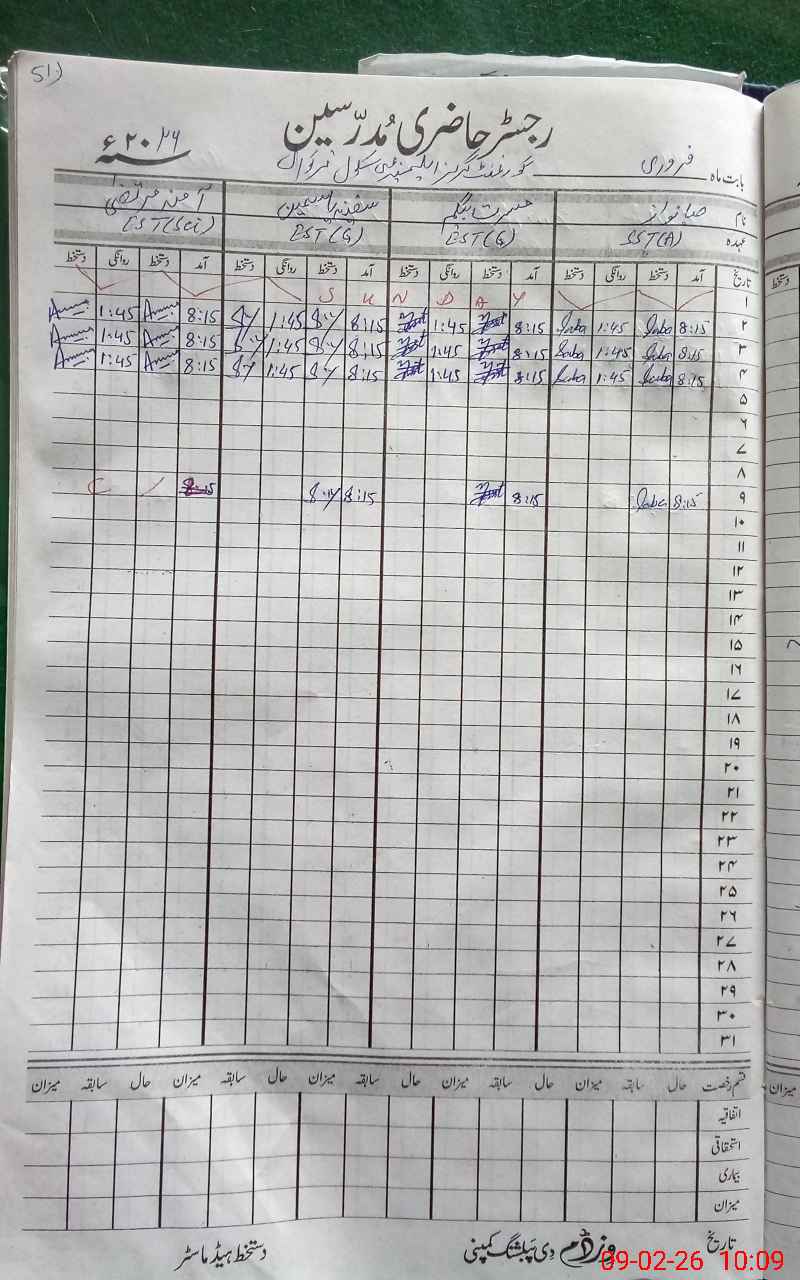 51)
رجسٹر حاضری مُدرّسین
سنہ ۲۰۲۶ء
بابت ماہ فروری گورنمنٹ گرلز ایلیمنٹری سکول
نام صبا نواز مسرت بیگم سفینہ یاسمین آمنہ مرتضیٰ
عہدہ SST(A) EST(G) EST(G) EST(Sci)
تاریخ آمد دستخط روانگی دستخط آمد دستخط روانگی دستخط آمد دستخط روانگی دستخط آمد دستخط روانگی دستخط
۱ S U N D A Y
۲ 8:15 Saba 1:45 Saba 8:15 1:45 8:15 Sy 1:45 Sy 8:15 1:45
۳ 8:15 Saba 1:45 Saba 8:15 1:45 8:15 Sy 1:45 Sy 8:15 1:45
۴ 8:15 Saba 1:45 Saba 8:15 1:45 8:15 Sy 1:45 Sy 8:15 1:45
۵
۶
۷
۸
۹ 8:15 Saba 8:15 8:15 Sy 8:15 / C
۱۰
۱۱
۱۲
۱۳
۱۴
۱۵
۱۶
۱۷
۱۸
۱۹
۲۰
۲۱
۲۲
۲۳
۲۴
۲۵
۲۶
۲۷
۲۸
۲۹
۳۰
۳۱
قسم رخصت حال سابقہ میزان حال سابقہ میزان حال سابقہ میزان حال سابقہ میزان
اتفاقیہ
استحقاقی
بیماری
میزان
تاریخ وزڈم دی پبلشنگ کمپنی دستخط ہیڈ ماسٹر
دستخط
میزان
09-02-26 10:09